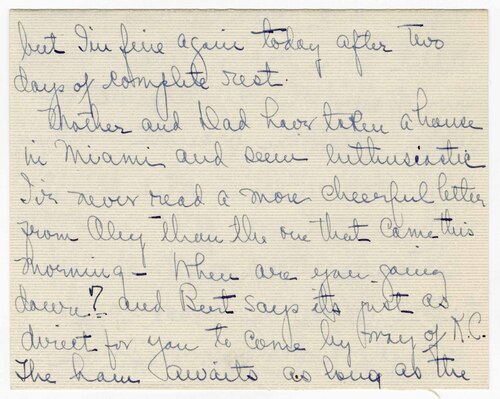 but I'm fine again today after two
days of complete rest.
Mother and Dad have taken a house
in Miami and seem enthusiastic
I've never read a more cheerful letter
from than the one that came this
morning - When are you going
down? and Bert says its just as
direct for you to come by way of N.C.
The ham awaits as long as the